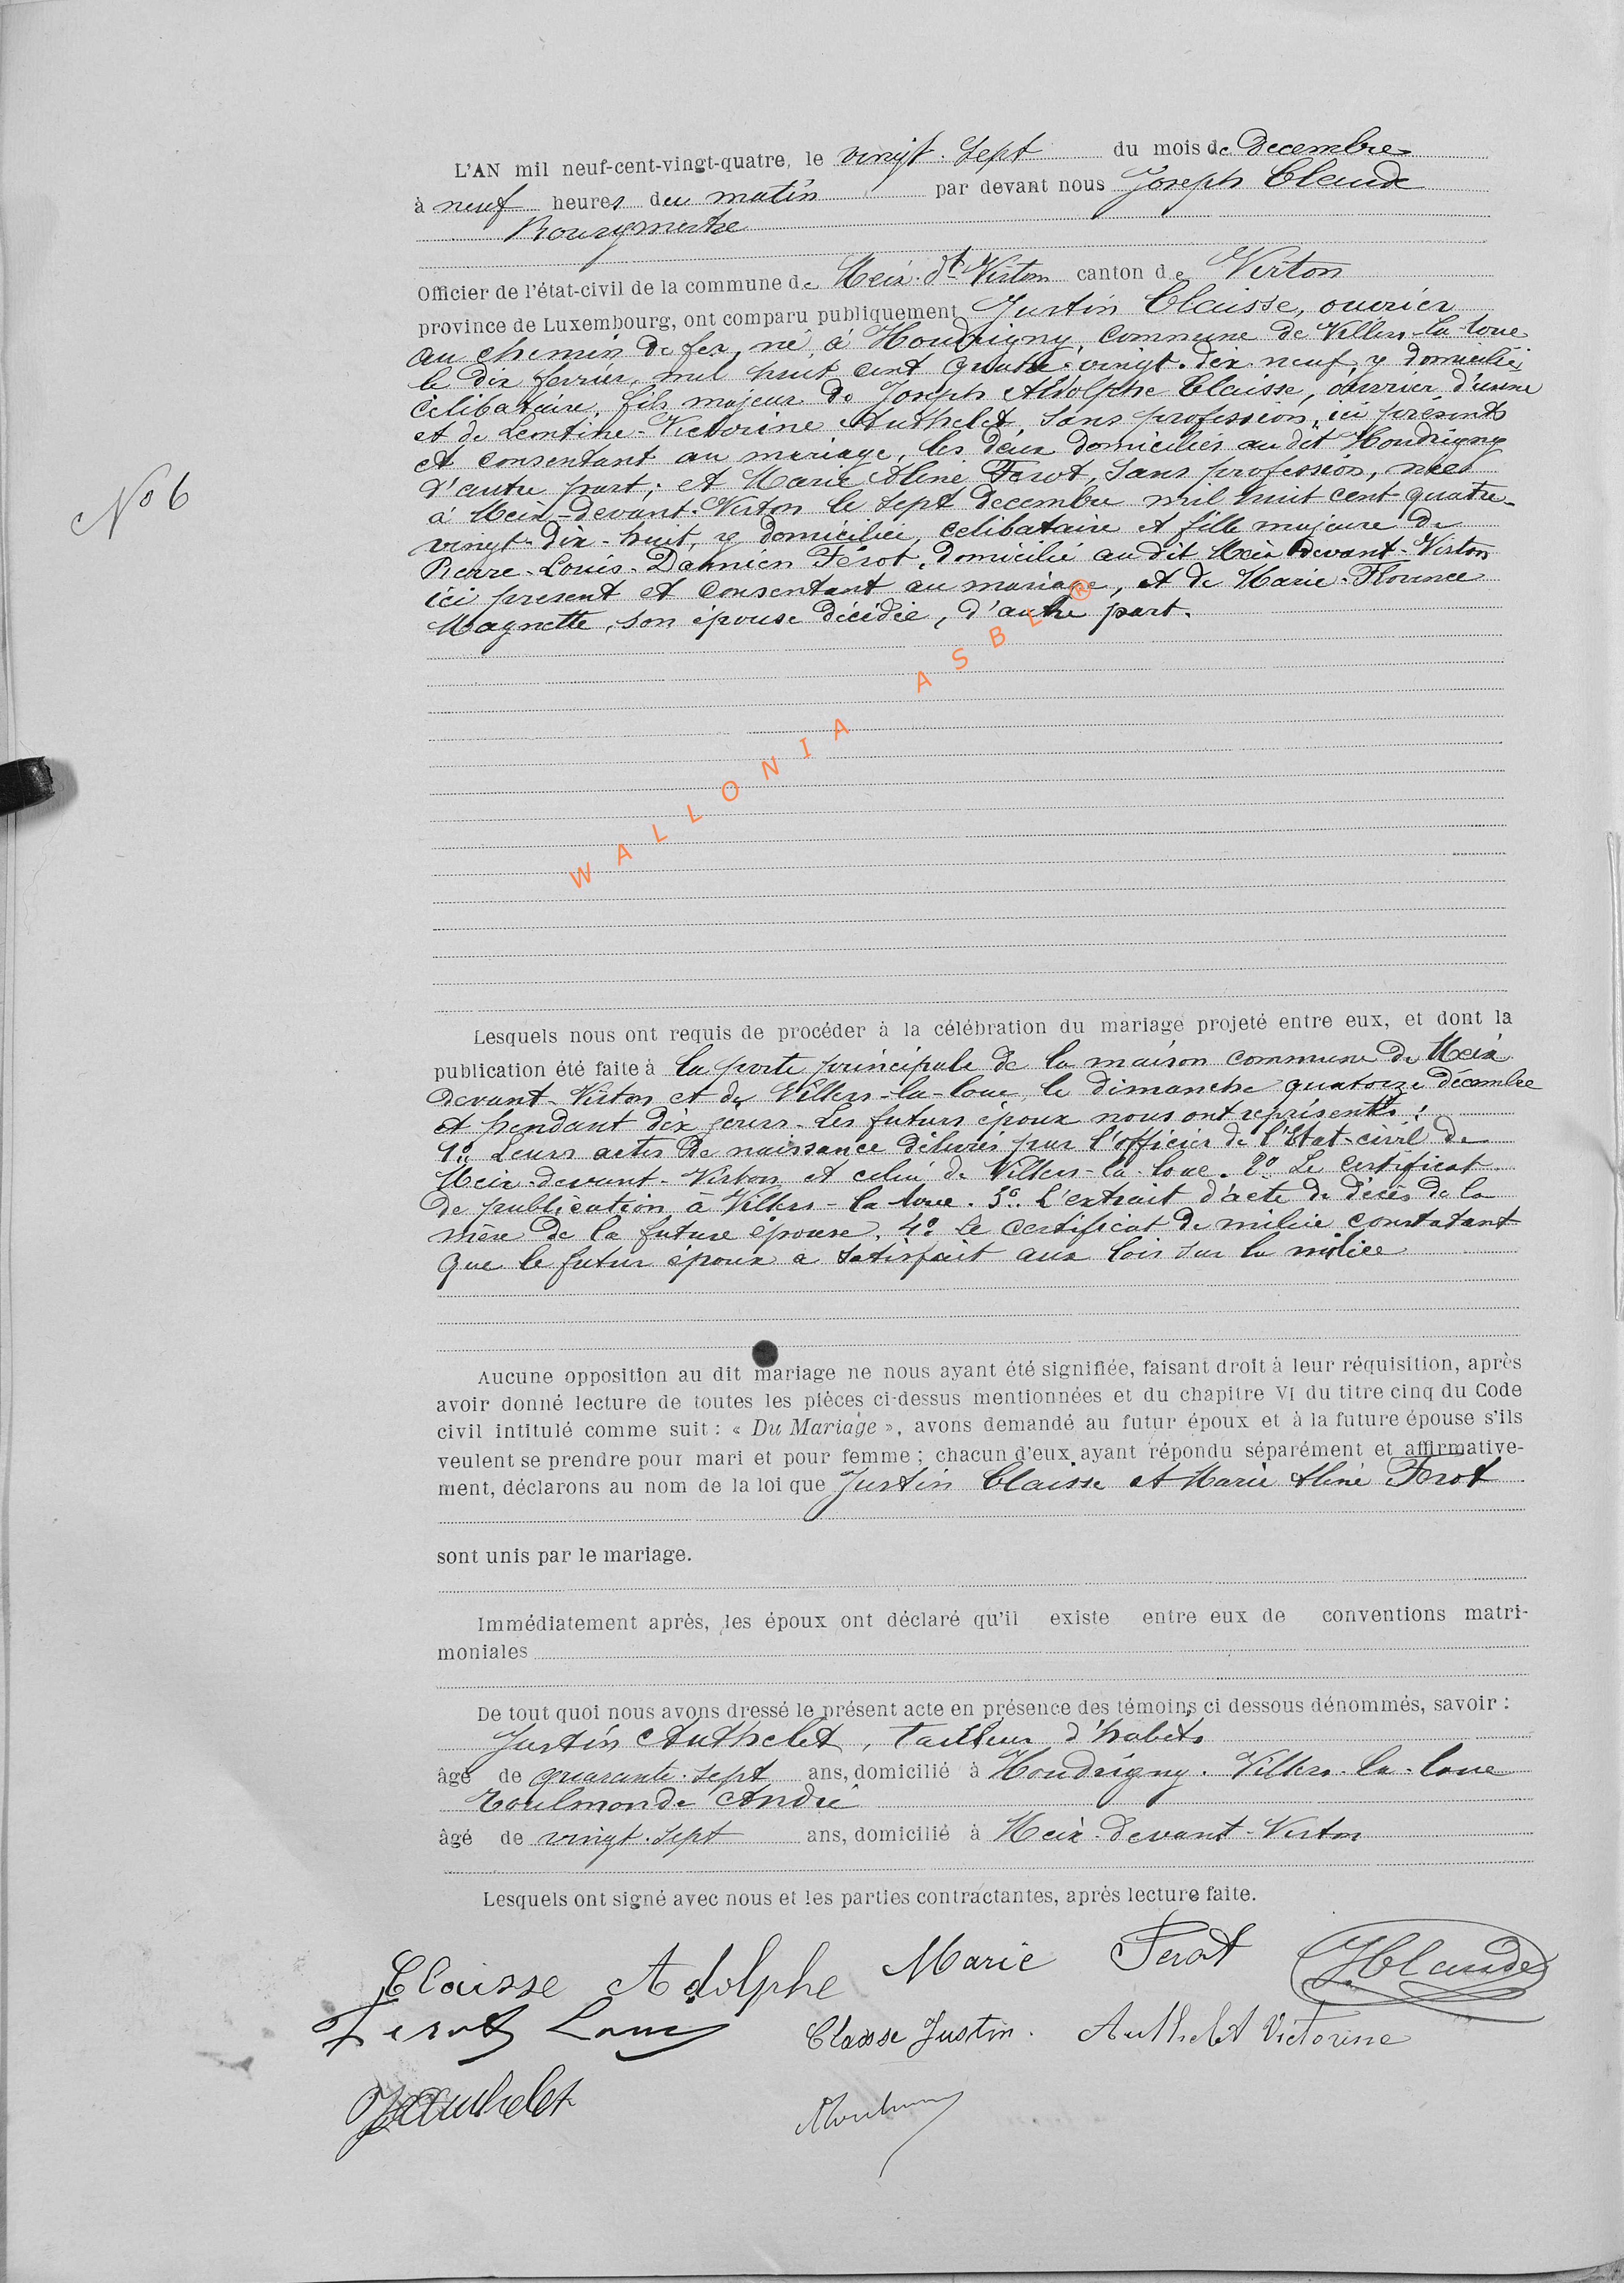 L'AN mil neuf-cent-vingt-quatre, le vingt-sept du mois de decembre
à neuf heures du matin par devant nous Joseph Claude
Bourgmestre
Officier de l'état-civil de la commune de Meix-dt-Virton canton de Virton
province de Luxembourg, ont comparu publiquement Justin Claisse, ouvrier
au chemin de fer, né à Houdrigny, commune de Villers-la-loue
le dix fevrier, mil huit cent quatre-vingt-dix neuf, y domicilié,
célibataire, fils majeur de Joseph Adolphe Claisse, ouvrier d'usine
et de Leontine-Victorine Authelet, sans profession, ici présents
et consentant au mariage, les deux domiciliés au dit Houdrigny
d'autre part; et Marie Aline Ferot, sans profession, née
à Meix-devant-Virton le sept decembre mil huit cent quatre-
vingt-dix-huit, y domiciliée, celibataire et fille majeure de
Pierre-Louis-Damien Férot, domicilié au dit Meix devant-Virton
ici present et consentant au mariage, et de Marie-Florence
Magnette, son épouse décédée, d'autre part.
No 6
WALLONIA ASBL ®
Lesquels nous ont requis de procéder à la célébration du mariage projeté entre eux, et dont la
publication été faite à la porte principale de la maison commune de Meix
devant-Virton et de Villers-la-loue, le dimanche quatorze décembre
et pendant dix jours. Les futurs époux nous ont représentés:
1° Leurs actes de naissance délivrés par l'officier de l'Etat-civil de
Meix-devant-Virton et celui de Villers-la-loue. 2° Le certificat
de publication à Villers-la loue. 3° L'extrait d'acte de décès de la
mère de la future épouse. 4° Le certificat de milice constatant
que le futur époux a satisfait aux lois sur la milice
Aucune opposition au dit mariage ne nous ayant été signifiée, faisant droit à leur réquisition, après
avoir donné lecture de toutes les pièces ci-dessus mentionnées et du chapitre VI du titre cinq du Code
civil intitulé comme suit : « Du Mariage », avons demandé au futur époux et à la future épouse s'ils
veulent se prendre pour mari et pour femme ; chacun d'eux ayant répondu séparément et affirmative-
ment, déclarons au nom de la loi que Justin Claisse et Marie Aline Ferot
sont unis par le mariage.
Immédiatement après, les époux ont déclaré qu'il existe entre eux de conventions matri-
moniales
De tout quoi nous avons dressé le présent acte en présence des témoins ci dessous dénommés, savoir :
Justin Authelet, tailleur d'habits
âgé de quarante-sept ans, domicilié à Houdrigny. Villers-la-loue
Toulmonde André
âgé de vingt-sept ans, domicilié à Meix-devant-Virton
Lesquels ont signé avec nous et les parties contractantes, après lecture faite.
Claisse Adolphe Marie Ferot JClaude
Ferot Louis Claisse Justin. Authelet Victorine
JAuthelet